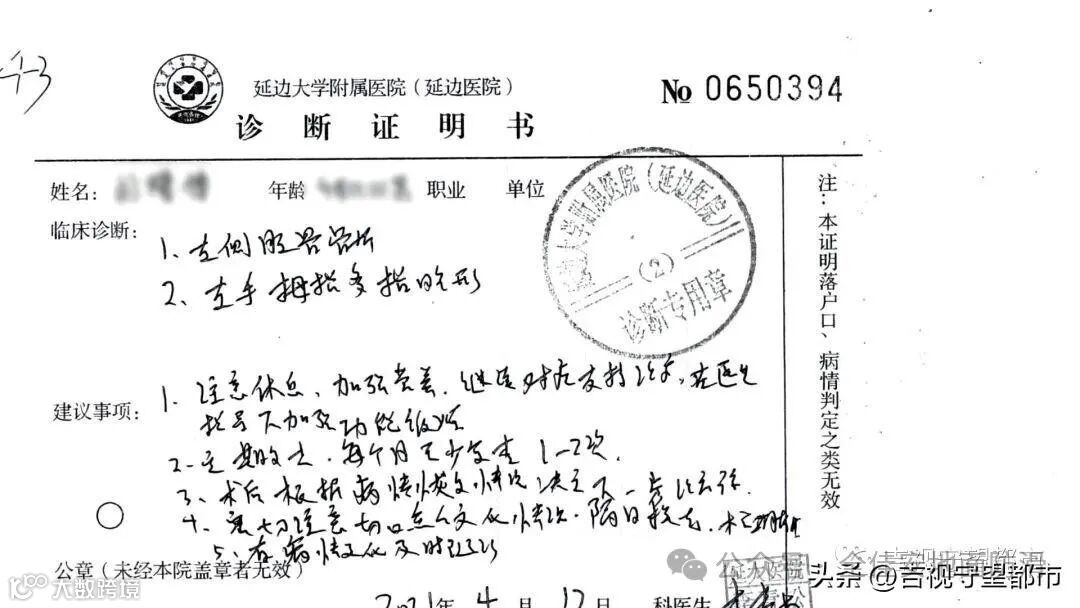 延边大学附属医院（延边医院）
№ 0650394
诊 断 证 明 书
姓名： 年龄 职业 单位
临床诊断：
1、左侧胫骨骨折
2、左手拇指多指畸形
延边大学附属医院（延边医院）
（2）
诊断专用章
建议事项：
1、注意休息、加强营养，继续对症支持治疗，在医生
指导下加强功能锻炼
2、定期收治，每个月至少复查1-2次
3、术后根据病情恢复情况决定下一步治疗
4、密切注意切口变化情况，隔日换药，
5、有病情变化及时
公章（未经本院盖章者无效）
2021年4月12日 科医生
注：本证明落户口、病情判定之类无效
公众号
头条@吉视守望都市
大数跨境